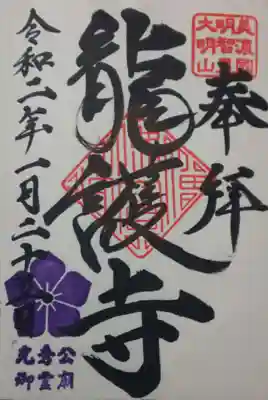 奉拝
龍護寺
令和二年一月二十日
美濃國
明智
大明山
光秀公
御霊廟